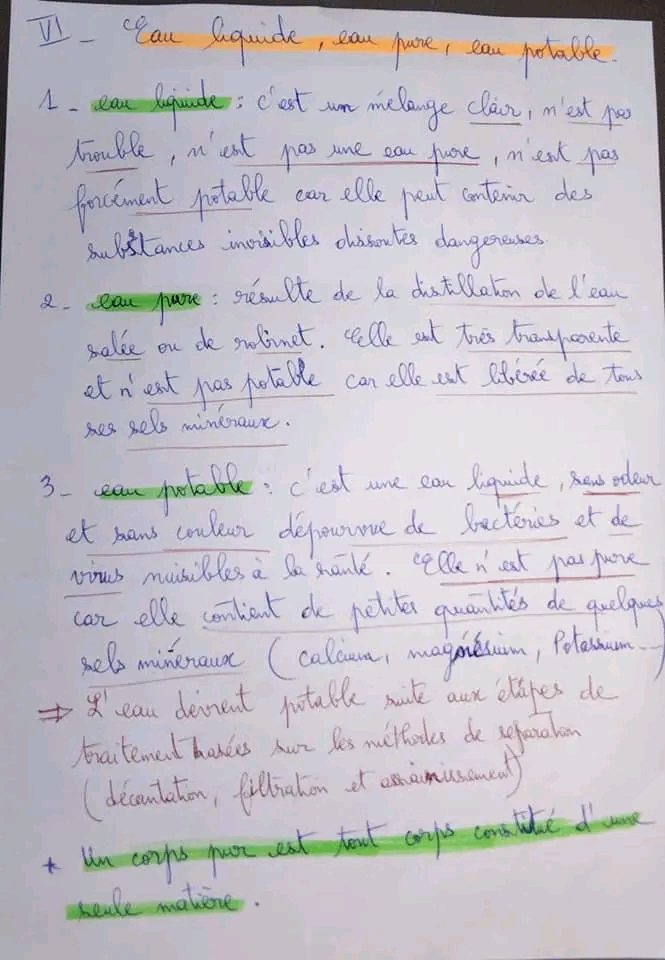 VI - Eau liquide, eau pure, eau potable.
1 - eau liquide : c'est un mélange clair, n'est pas
trouble, n'est pas une eau pure, n'est pas
forcément potable car elle peut contenir des
substances invisibles dissoutes dangereuses.
2 - eau pure : résulte de la distillation de l'eau
salée ou de robinet. Elle est très transparente
et n'est pas potable car elle est libérée de tous
ses sels minéraux.
3 - eau potable : c'est une eau liquide, sans odeur
et sans couleur dépourvue de bactéries et de
virus nuisibles à la santé. Elle n'est pas pure
car elle contient de petites quantités de quelques
sels minéraux (calcium, magnésium, Potassium...)
⇒ L'eau devient potable suite aux étapes de
traitement basées sur les méthodes de separation
(décantation, filtration et assainissement)
* Un corps pur est tout corps constitué d'une
seule matière.